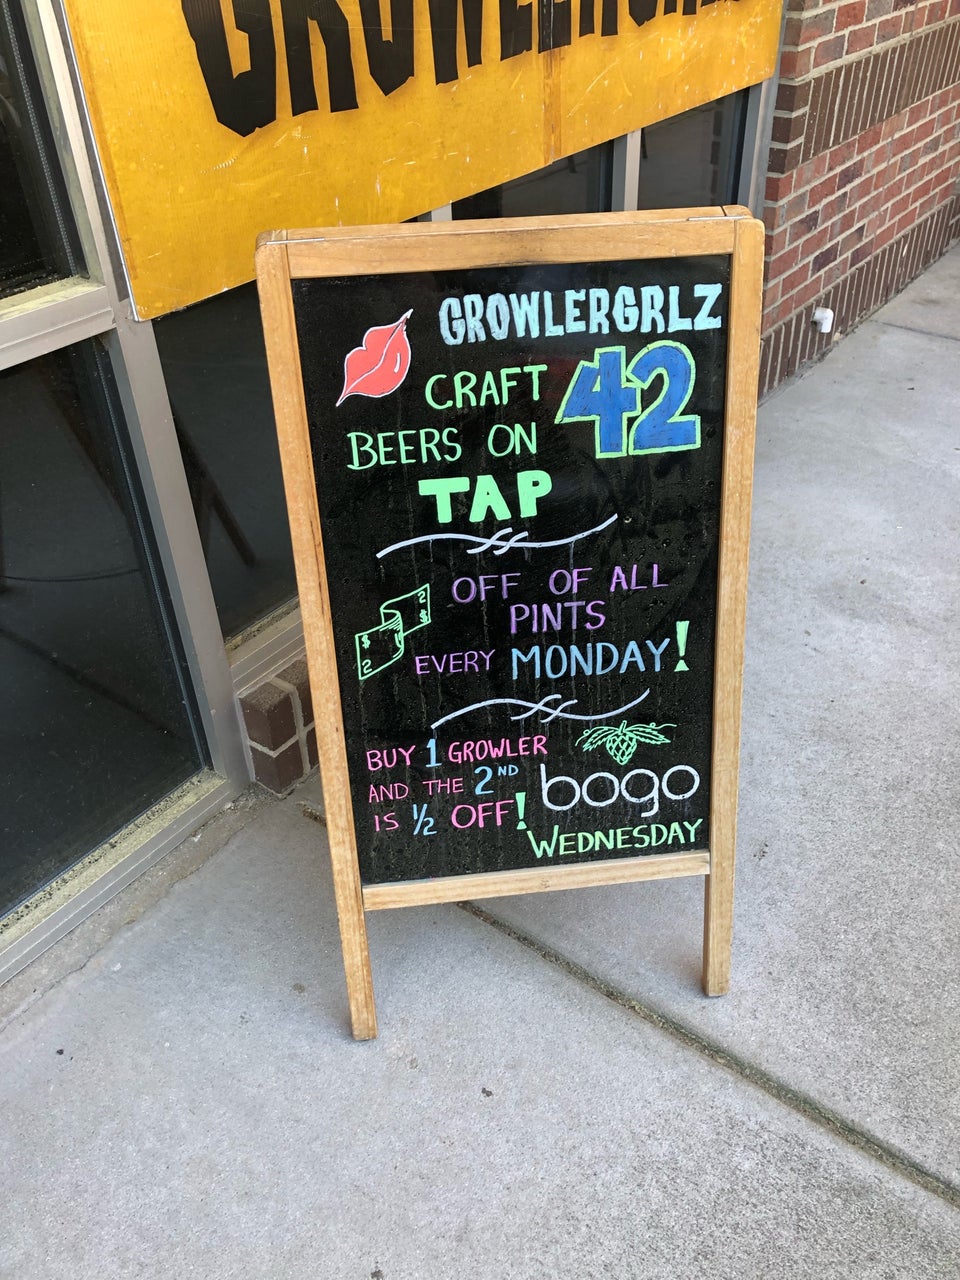 GROWLERGRLZ
CRAFT 42
BEERS ON
TAP
$ 2
$ 2
OFF OF ALL
PINTS
EVERY MONDAY!
BUY 1 GROWLER
AND THE 2ND bogo
IS ½ OFF!
WEDNESDAY